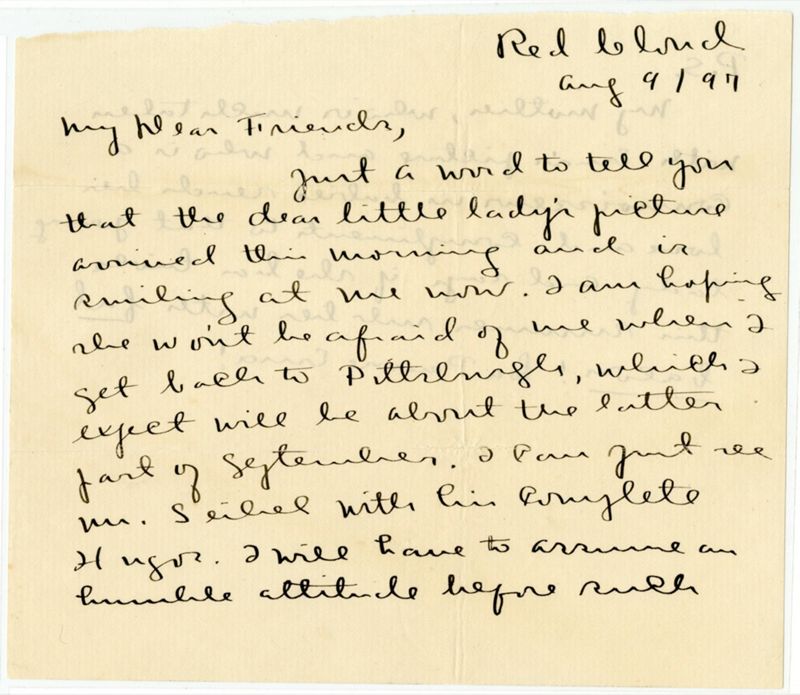 Red Cloud
Aug 9/97
My Dear Friends,
Just a word to tell you
that the dear little lady's picture
arrived this morning and is
smiling at me now. I am hoping
she won't be afraid of me when I
get back to Pittsburgh, which I
expect will be about the latter
part of September. I can just see
Mr. Seibel with his complete
Hugos. I will have to assume an
humble attitude before such